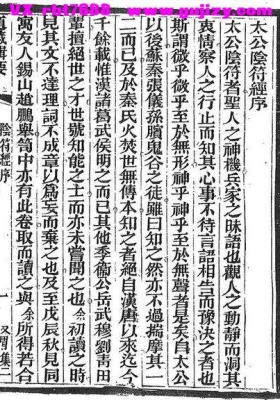 www.gujizy.com
太公陰符經序
太公陰符者聖人之神機兵家之昧語也觀人之動靜而洞其
衷情察人之行止而知其心事不待言語相告而豫決之者也
斯謂微乎微乎至於無形神乎神乎至於無聲者是矣自太公
以後蘇秦張儀孫臏鬼谷之徒雖曰知之然亦不過揣摩其一
二而已及於秦民火焚世無傳本知之者絕自漢唐以來迄今
千餘載惟漢諸葛武侯明之而已其他季衞公岳武穆劉青田
輩擅絕世之才世號知能之士而亦未嘗聞之也余初讀之時
見其文不達理詞不成章以爲妄而棄之也及至戊辰秋見同
寓友人錫山趙鵬舉笥中亦有此卷取而讀之與余所得若合
道藏輯要
陰符經序
一